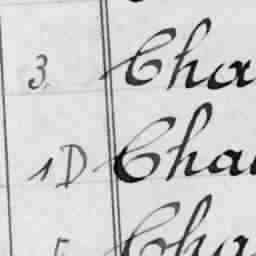 3. Cha
1D Cha
5 Cha